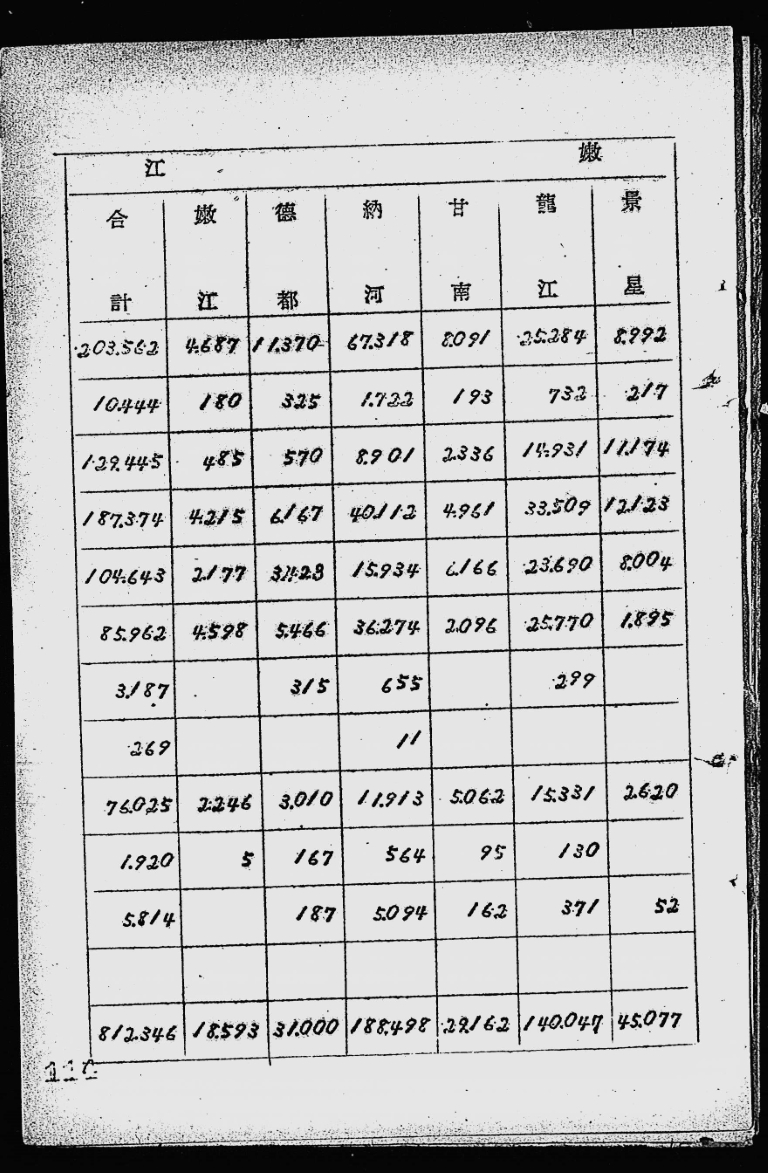 嫩江
景星 龍江 甘南 納河 德都 嫩江 合計
203.562 4.687 11.370 67.318 8.091 25.284 8.992
10.444 180 325 1.722 193 732 217
129.445 485 570 8.901 2.336 14.931 11.174
187.374 4.215 6.167 40.112 4.961 33.509 12.123
104.643 2.177 3.423 15.934 6.166 23.690 8.004
85.962 4.598 5.466 36.274 2.096 25.770 1.895
3.187 315 655 299
269 11
76.025 2.246 3.010 11.913 5.062 15.331 2.620
1.920 5 167 564 95 130
5.814 187 5.094 162 371 52
812.346 18.593 31.000 188.498 29.162 140.047 45.077